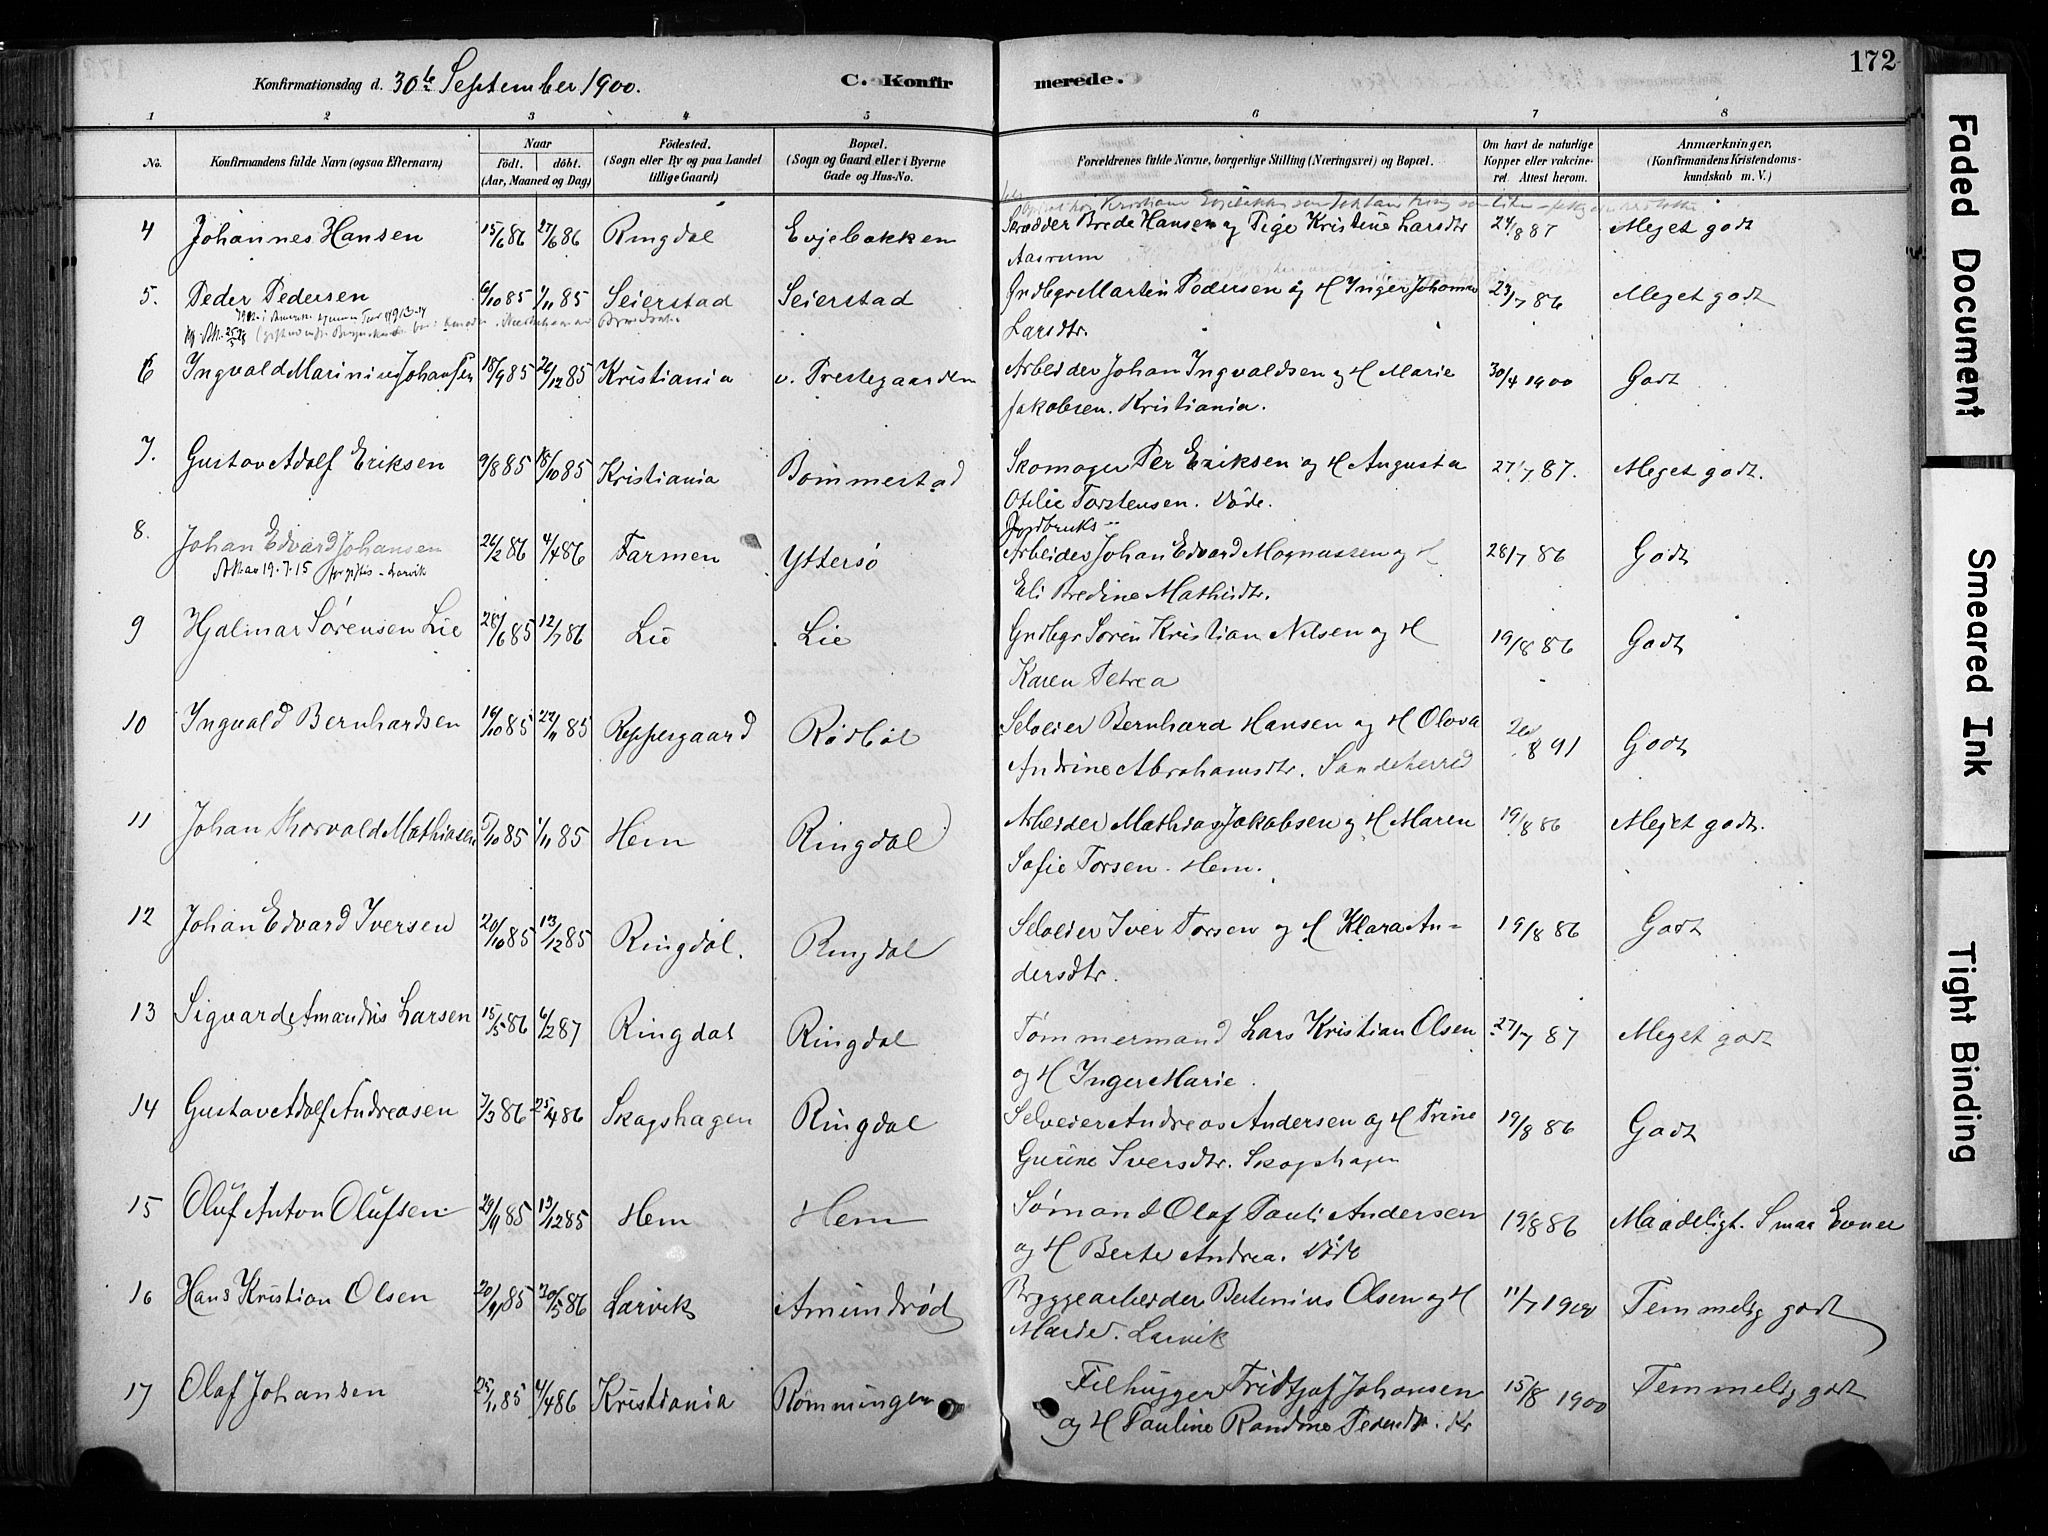 172
Konfirmationsdag d. 30te September 1900. C. Konfirmerede.
1 2 3 4 5 6 7 8
No. Konfirmandens fulde Navn (ogsaa Efternavn) Naar født. døbt. (Aar, Maaned og Dag) Fødested. (Sogn eller By og paa Landet tillige Gaard) Bopæl. (Sogn og Gaard eller i Byerne Gade og Hus-No. Forældrenes fulde Navne, borgerlige Stilling (Næringsvei) og Bopæl. Om havt de naturlige Kopper eller vakcineret. Attest herom. Anmærkninger. (Konfirmandens Kristendomskundskab m. V.)
4 Johannes Hansen 15/6 86 27/6 86 Ringdal Evjebakken Skrædder Brede Hansen og Pige Kristine Larsdtr 24/8 87 Meget godt
Aasrum
5. Peder Pedersen 6/10 85 1/11 85 Seierstad Seierstad Grdbgr Martin Pedersen og H Inger Johanne 29/7 86 Meget godt
Larsdtr.
6 Ingvald Marinius Johansen 18/9 85 26/12 85 Kristiania v. Prestegaarden Arbeider Johan Ingvaldsen og H Marie 30/4 1900 Godt
Jakobsen. Kristiania.
7. Gustav Adolf Eriksen 9/8 85 18/10 85 Kristiania Bommestad Skomager Per Eriksen og H Augusta 27/7 87. Meget godt.
Otilie Torstensen. Døde.
8. Johan Edvard Johansen 26/2 86 4/4 86 Farmen Yttersø Jordbruks-
Arbeider Johan Edvard Magnussen og H 28/7 86 Godt
19.7.15 Larvik
Eli Bredine Mathisdtr.
9 Hjalmar Sørensen Lie 28/6 85 12/7 86 Lie Lie Grdbgr Søren Kristian Nilsen og H 19/8 86 Godt
Karen Petrea
10 Ingvald Bernhardsen 16/10 85 22/11 85 Reppesgaard Rødbøl Selveier Bernhard Hansen og H Olova 26/8 91 Godt
Andrine Abrahamsdtr. Sandeherred
11 Johan Thorvald Mathiasen 5/10 85 1/11 85 Hem Ringdal Arbeider Mathias Jakobsen og H Maren 19/8 86 Meget godt.
Sofie Torsen. Hem.
12 Johan Edvard Iversen 20/10 85 13/12 85 Ringdal. Ringdal Selveier Iver Torsen og H Klara An- 19/8 86 Godt
dersdtr.
13 Sigvard Amandus Larsen 15/5 86 6/2 87 Ringdal Ringdal Tømmermand Lars Kristian Olsen 27/7 87 Meget godt
og H Inger Marie.
14 Gustav Adolf Andreasen 7/3 86 25/4 86 Skogshagen Ringdal Selveier Andreas Andersen og H Trine 19/8 86 Godt
Gurine Iversdtr. Skogshagen
15 Oluf Anton Olufsen 29/9 85 13/12 85 Hem Hem Sømand Olaf Pauli Andersen 19/8 86 Maadeligt. Smaa Evner
og H Berte Andrea. Døde
16 Hans Kristian Olsen 20/11 85 20/5 86 Larvik Amundrød Bryggearbeider Bertinius Olsen og H 11/7 1900 Temmelig godt
Marie. Larvik
17 Olaf Johansen 25/11 85 4/4 86 Kristiania Rømmingen Filhugger Fridtjof Johansen 15/8 1900 Temmelig godt
og H Pauline Randine Pedersdtr. Kr
Faded Document
Smeared Ink
Tight Binding